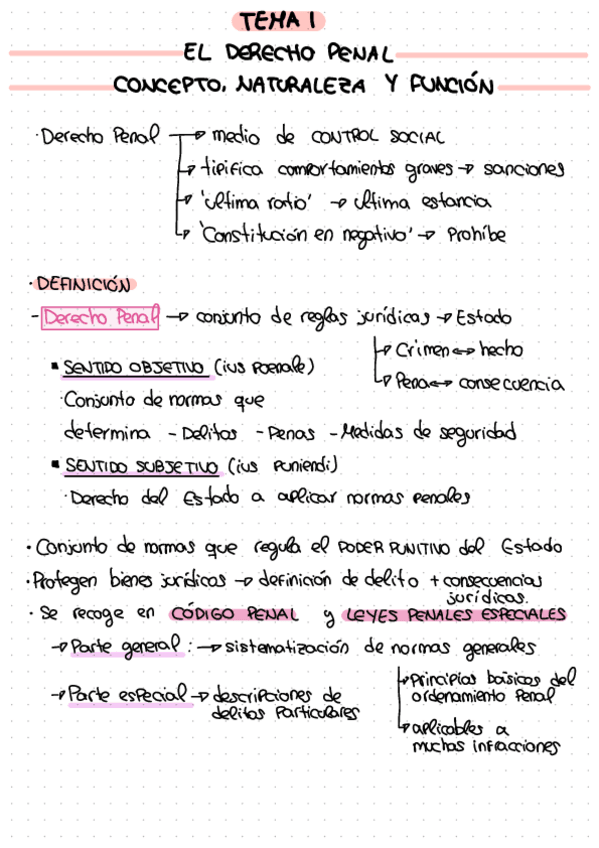 TEMA 1
EL DERECHO PENAL
CONCEPTO, NATURALEZA Y FUNCIÓN
· Derecho Penal → medio de CONTROL SOCIAL
→ tipifica comportamientos graves → sanciones
→ 'ultima ratio' → ultima estancia
→ 'Constitución en negativo' → Prohíbe
· DEFINICIÓN
- Derecho Penal → conjunto de reglas jurídicas → Estado
→ Crimen ↔ hecho
→ Pena ↔ consecuencia
▪ SENTIDO OBJETIVO (ius poenale)
· Conjunto de normas que
determina - Delitos - Penas - Medidas de seguridad
▪ SENTIDO SUBJETIVO (ius puniendi)
· Derecho del Estado a aplicar normas penales
· Conjunto de normas que regula el PODER PUNITIVO del Estado
· Protegen bienes jurídicos → definición de delito + consecuencias
jurídicas.
· Se recoge en CÓDIGO PENAL y LEYES PENALES ESPECIALES
→ Parte general : → sistematización de normas generales
→ Principios básicos del
ordenamiento Penal
→ aplicables a
muchas infracciones
→ Parte especial → descripciones de
delitos particulares